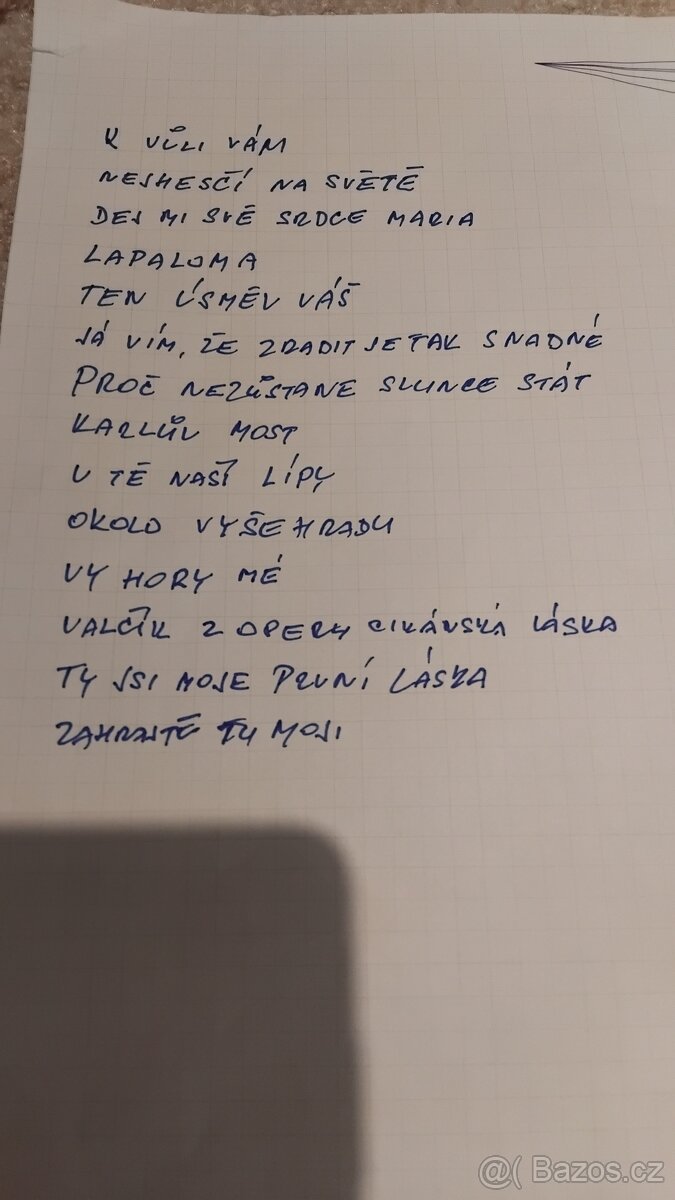 K VŮLI VÁM
NEJHESČÍ NA SVĚTĚ
DEJ MI SVÉ SRDCE MARIA
LAPALOMA
TEN ÚSMĚV VÁŠ
JÁ VÍM, ŽE ZRADIT JE TAK SNADNÉ
PROČ NEZŮSTANE SLUNCE STÁT
KARLŮV MOST
U TÉ NAŠÍ LÍPY
OKOLO VYŠEHRADU
VY HORY MÉ
VALČÍK Z OPERY CIKÁNSKÁ LÁSKA
TY JSI MOJE PRVNÍ LÁSKA
ZAHRAJTĚ TU MOJI
@( Bazos.cz